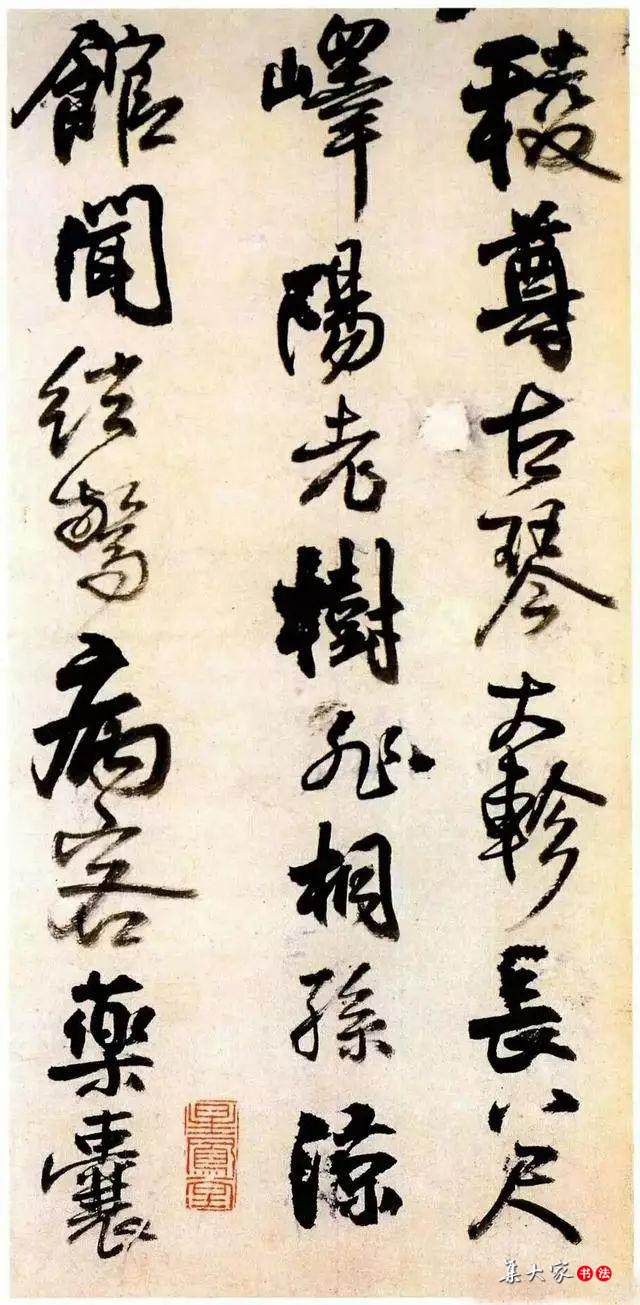 稜尊古琴大軫長八尺
嶧陽老樹非桐孫涼
館聞絃驚病客藥囊
集大家书法